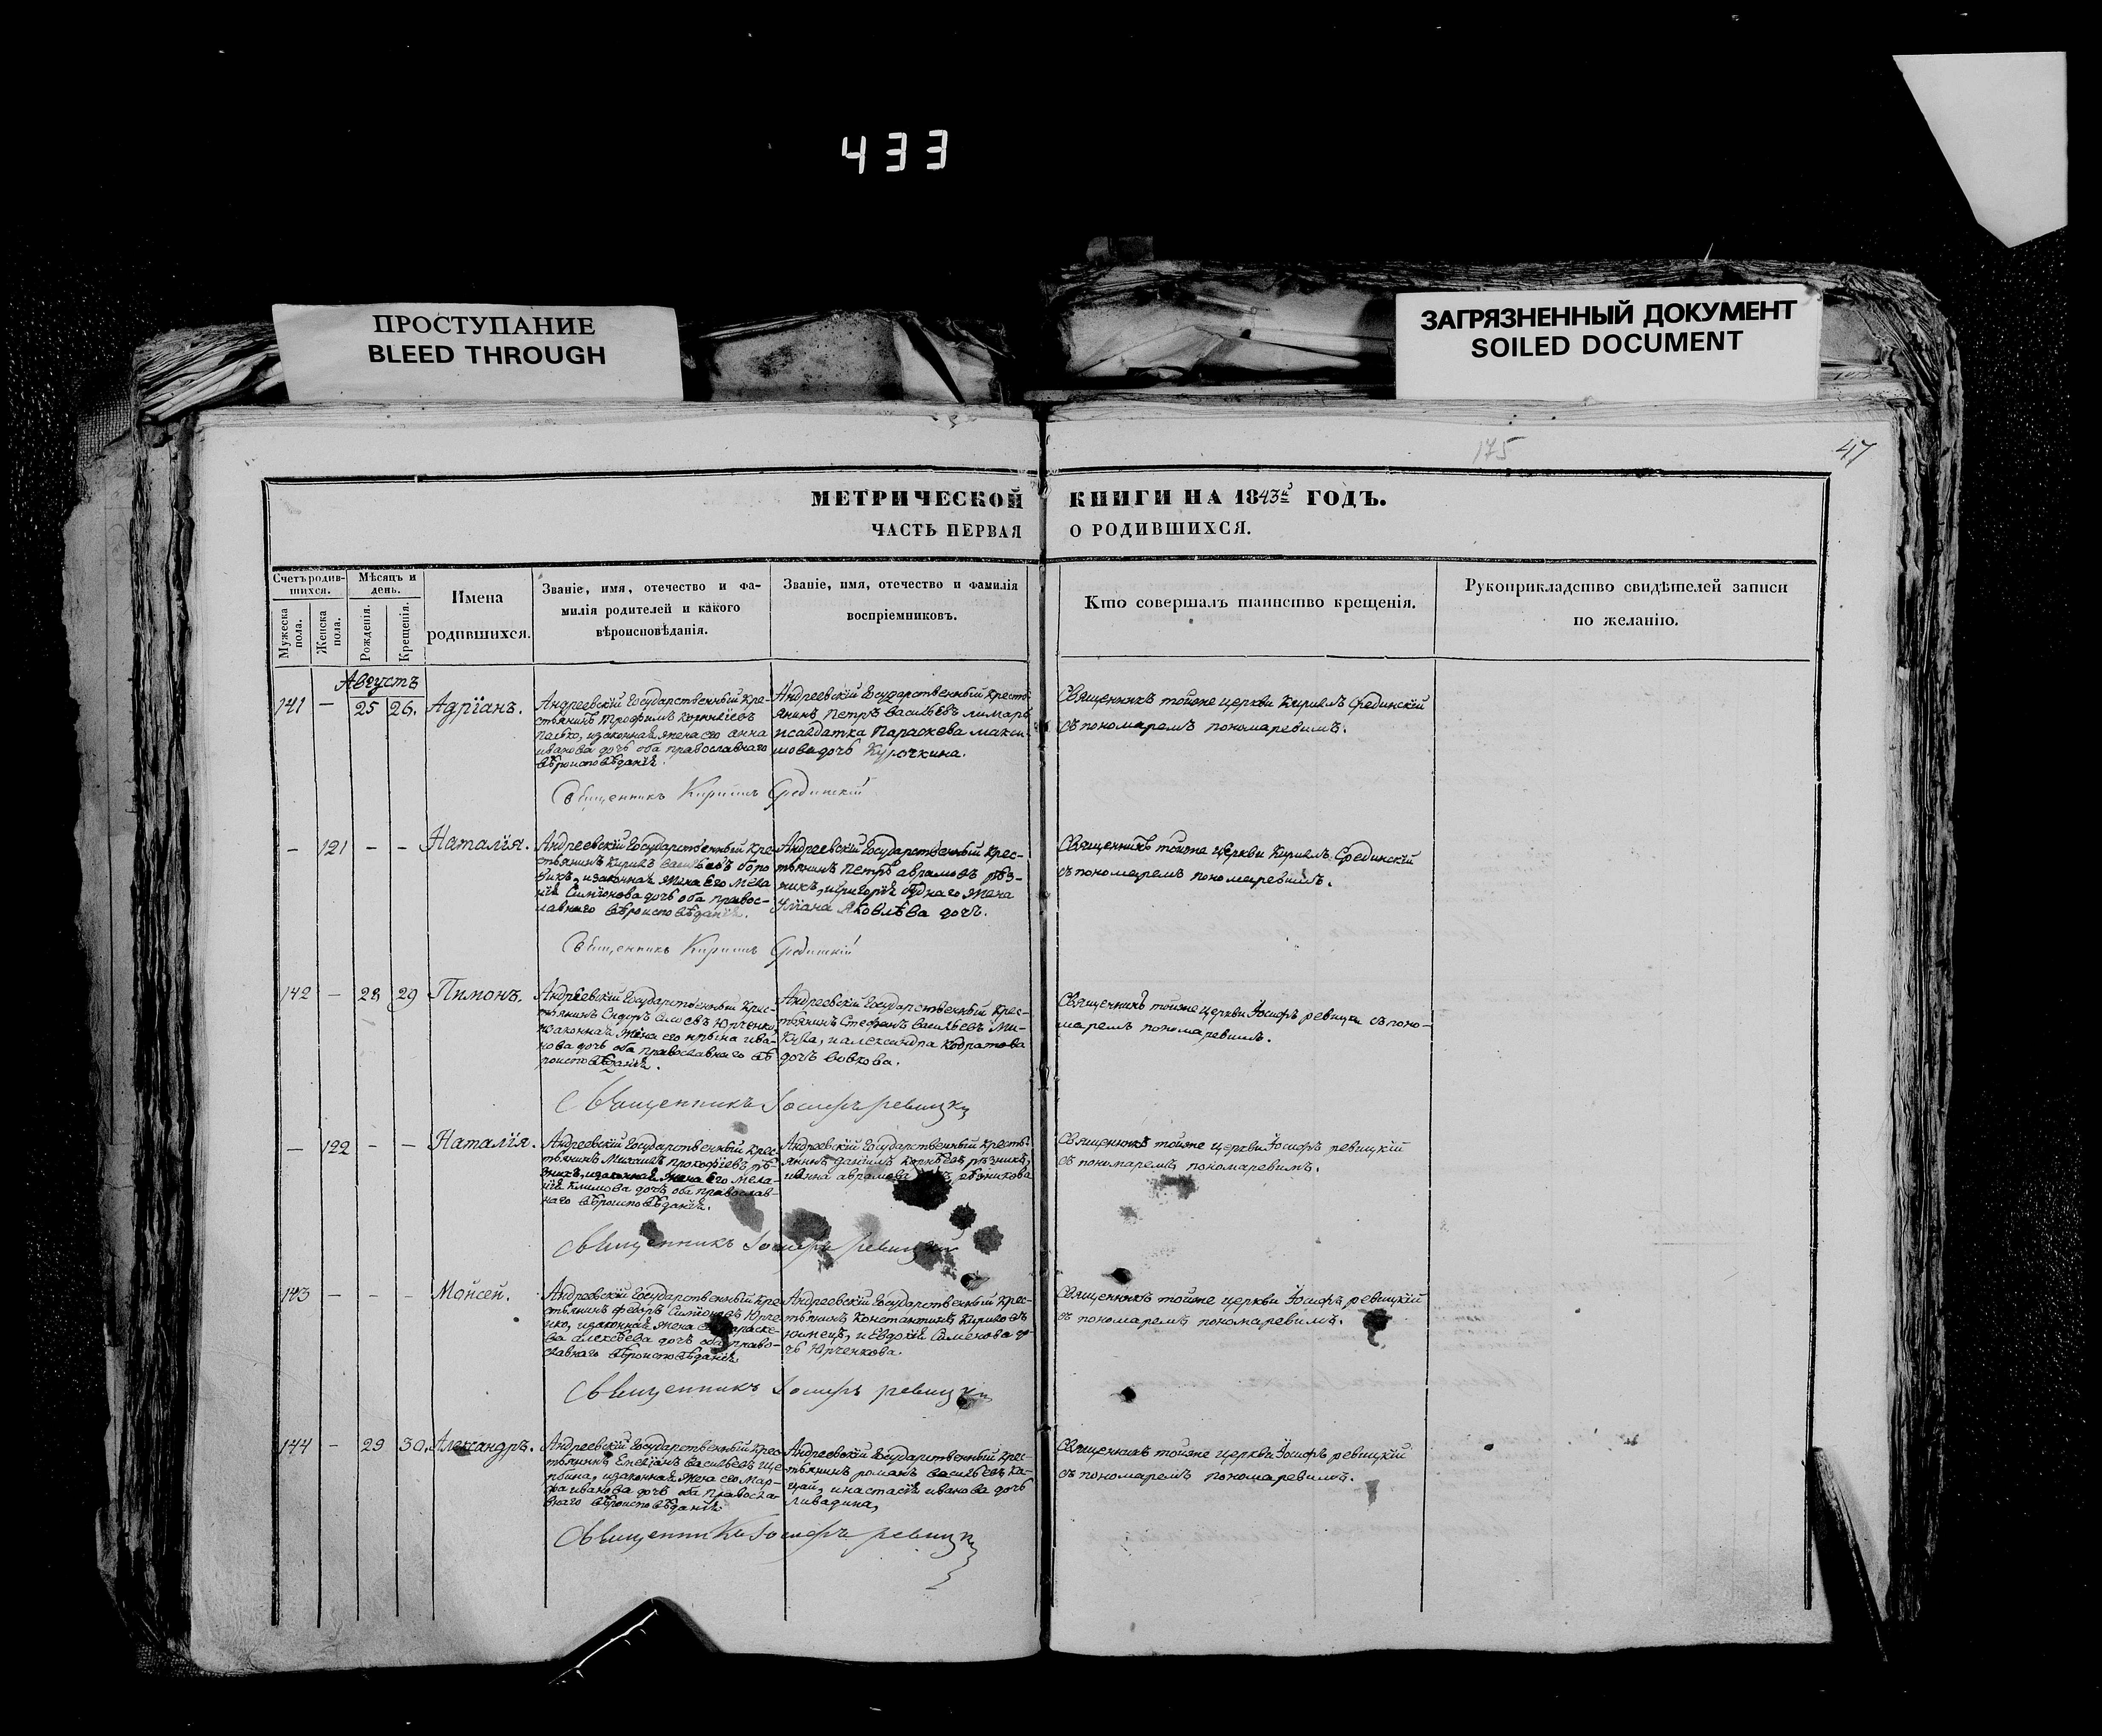 433
ПРОСТУПАНИЕ
BLEED THROUGH
ЗАГРЯЗНЕННЫЙ ДОКУМЕНТ
SOILED DOCUMENT
175
47
МЕТРИЧЕСКОЙ КНИГИ НА 1843й ГОДЪ.
ЧАСТЬ ПЕРВАЯ О РОДИВШИХСЯ.
Счетъ родив-
шихся.
Мужеска
пола.
Женска
пола.
Мѣсяцъ и
день.
Рожденія.
Крещенія.
Имена
родившихся.
Званіе, имя, отечество и фа-
милія родителей и какого
вѣроисповѣданія.
Званіе, имя, отечество и фамилія
воспріемниковъ.
Кто совершалъ таинство крещенія.
Рукоприкладство свидѣтелей записи
по желанію.
Августъ
141 — 25 26. Адріанъ.
Андреевскій Государственный кре-
стьянинъ Трофимъ Корнѣевъ
изаконная жена его анна
иванова дочь оба православнаго
вѣроисповѣданія.
Андреевскій Государственный кресть-
янинъ Петръ Васильевъ лимарь
исалдатка Параскева макси-
мова дочь Курочкина.
Священникъ тойже церкви Кириллъ Срединскій
съ пономаремъ пономаревимъ.
Священникъ Кириллъ Срединскій
— 121 — — Наталія.
Андреевскій Государственный кре-
стьянинъ Кирилъ Васильевъ
изаконная жена Его Мела
нія Симіонова дочь оба правос-
лавнаго вѣроисповѣданія.
Андреевскій Государственный крес-
тьянинъ Петръ аврамовъ рѣз-
никъ, игригорія жена
Уліана Яковлѣва дочь.
Священникъ тойже церкви Кириллъ Срединскій
съ пономаремъ пономаревимъ.
Священникъ Кириллъ Срединскій
142 — 28 29 Пимонъ.
Андреевскій Государственный крес-
тьянинъ Сидоръ Юрченко,
изаконная жена его ирына ива-
нова дочь оба православнаго вѣ
роисповѣданія.
Андреевскій Государственный крес-
тьянинъ Стефанъ Васильевъ Ми-
иалександра Кодратова
дочь вовкова.
Священникъ тойже церкви Іосифъ ревицки съ поно-
маремъ пономаревимъ.
Священникъ Іосифъ ревицки
— 122 — — Наталія.
Андреевскій Государственный крес-
тьянинъ Михаилъ прокофіевъ рѣ-
зникъ, изаконная жена Его Мела-
нія Климова дочь оба православ-
наго вѣроисповѣданія.
Андреевскій Государственный кресть-
янинъ даніилъ Корнѣевъ рѣзникъ,
ианна аврамова рѣзникова
Священникъ тойже церкви Іосифъ ревицкій
съ пономаремъ пономаревимъ.
Священникъ Іосифъ ревицкій
143 — — — Мойсей.
Андреевскій Государственный кре-
стьянинъ федоръ Симіоновъ Юрче-
нко, изаконная жена его параске-
ва алексѣева дочь оба право-
славнаго вѣроисповѣданія.
Андреевскій Государственный крес-
тьянинъ Константинъ Кириловъ
и Евдокія Семенова до-
чь Юрченкова.
Священникъ тойже церкви Іосифъ ревицкій
съ пономаремъ пономаревимъ.
Священникъ Іосифъ ревицки
144 — 29 30. Александръ.
Андреевскій Государственный крес-
тьянинъ Емеліанъ Васильевъ Ще-
рбина, изаконная жена его мар-
фа иванова дочь оба правосла-
внаго вѣроисповѣданія
Андреевскій Государственный крес-
тьянинъ романъ Васильевъ
инастасія иванова дочь
Ливадина,
Священникъ тойже церкви Іосифъ ревицкій
съ пономаремъ пономаревимъ.
Священникъ Іосифъ ревицки